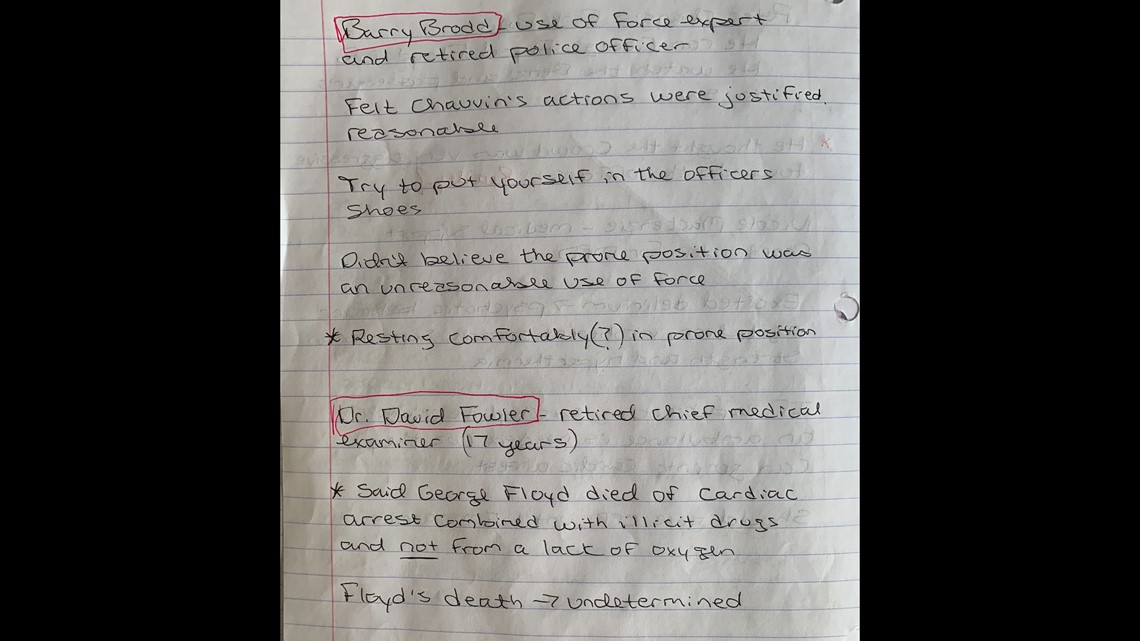 Barry Brodd - use of force expert
and retired police officer
Felt Chauvin's actions were justified.
reasonable
Try to put yourself in the officers
shoes
Didn't believe the prone position was
an unreasonable use of force
* Resting comfortably (?) in prone position
Dr. David Fowler - retired chief medical
examiner (17 years)
* Said George Floyd died of cardiac
arrest combined with illicit drugs
and not from a lack of oxygen
Floyd's death → undetermined